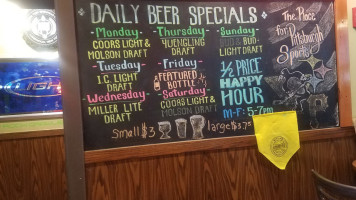 DAILY BEER SPECIALS
-Monday-
COORS LIGHT &
MOLSON DRAFT
-Tuesday-
I.C. LIGHT
DRAFT
-Wednesday-
MILLER LITE
DRAFT
-Thursday-
YUENGLING
DRAFT
-Friday-
FEATURED
BOTTLE
-Saturday-
COORS LIGHT &
MOLSON DRAFT
-Sunday-
BUD LIGHT
DRAFT
1/2 PRICE
HAPPY
HOUR
M-F: 5-7pm
Small $3
large $3.75
The Place
for
Pittsburgh
Sports